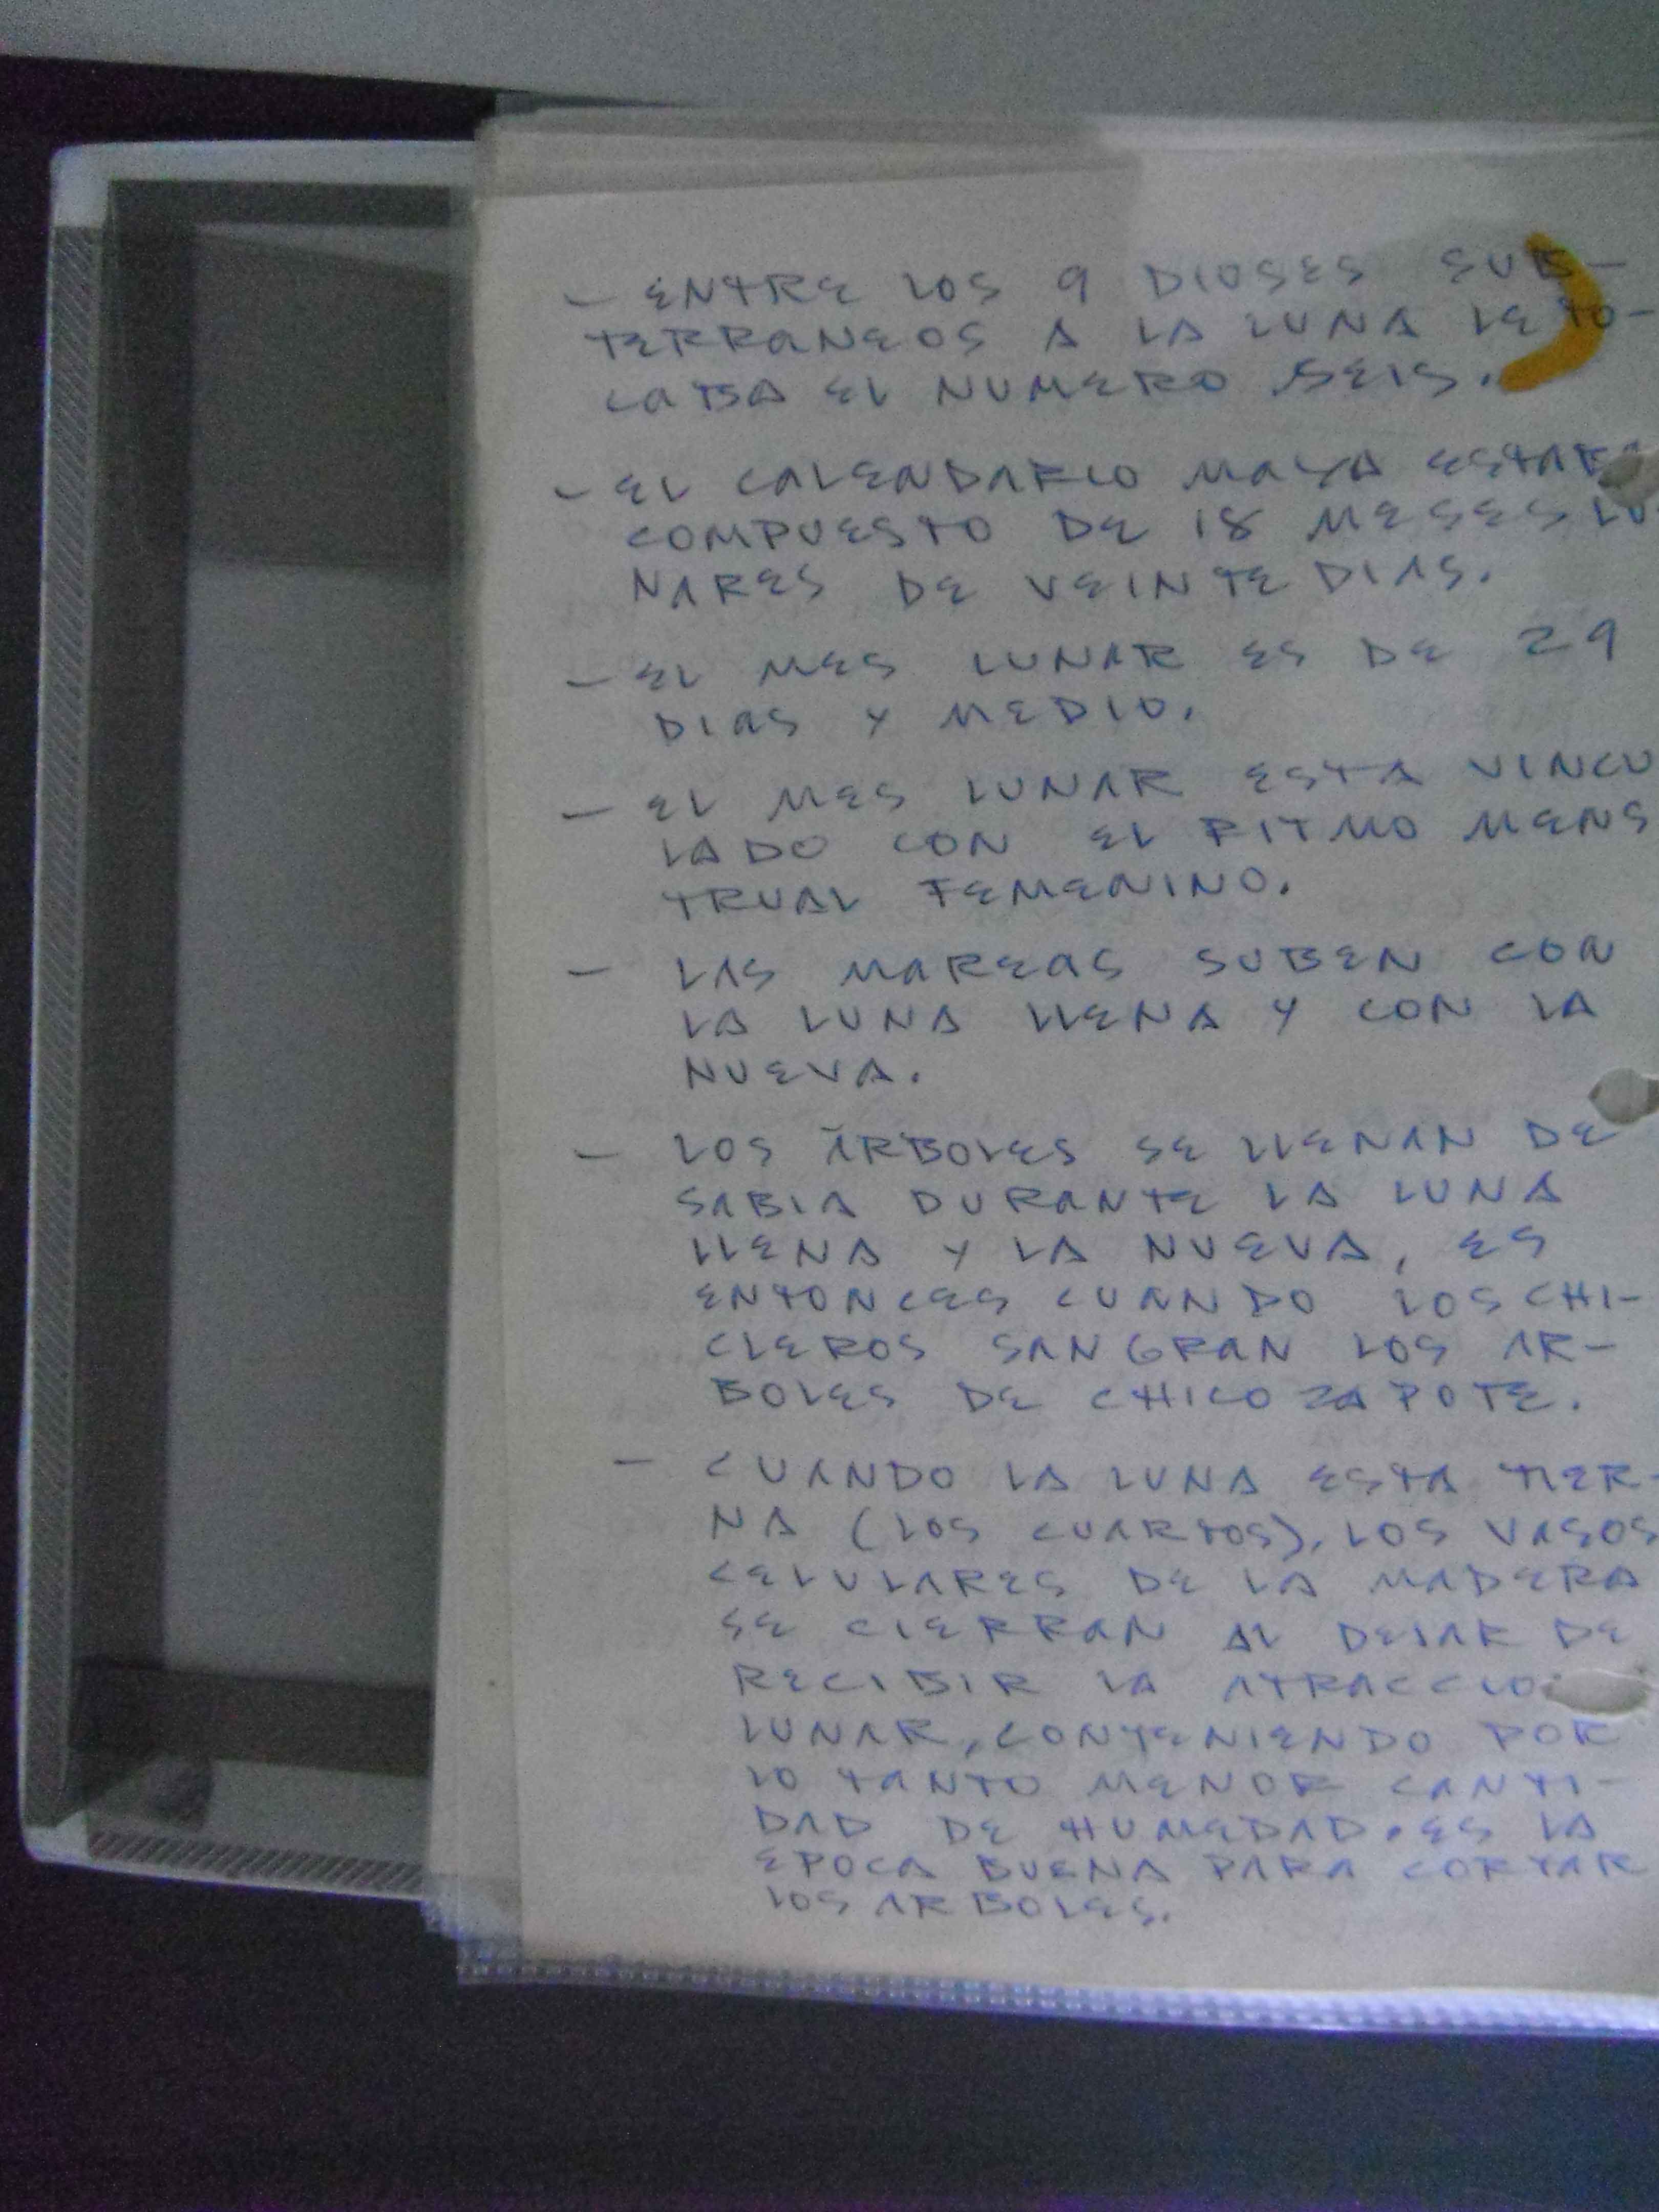 - ENTRE LOS 9 DIOSES SUB-
TERRANEOS A LA LUNA LE TO-
CABA EL NUMERO SEIS.
- EL CALENDARIO MAYA
COMPUESTO DE 18 MESES LU
NARES DE VEINTE DIAS.
- EL MES LUNAR ES DE 29
DIAS Y MEDIO.
- EL MES LUNAR ESTA VINCU
LADO CON EL RITMO MENS
TRUAL FEMENINO.
- LAS MAREAS SUBEN CON
LA LUNA LLENA Y CON LA
NUEVA.
- LOS ÁRBOLES SE LLENAN DE
SABIA DURANTE LA LUNA
LLENA Y LA NUEVA, ES
ENTONCES CUANDO LOS CHI-
CLEROS SANGRAN LOS AR-
BOLES DE CHICO ZAPOTE.
- CUANDO LA LUNA ESTA TIER-
NA (LOS CUARTOS), LOS VASOS
CELULARES DE LA MADERA
SE CIERRAN AL DEJAR DE
RECIBIR LA ATRACCIO
LUNAR, CONTENIENDO POR
LO TANTO MENOR CANTI-
DAD DE HUMEDAD. ES LA
EPOCA BUENA PARA CORTAR
LOS ARBOLES.